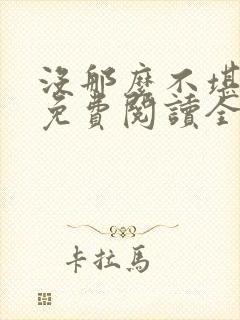 沒那麼不堪
免費閱讀全
卡拉馬